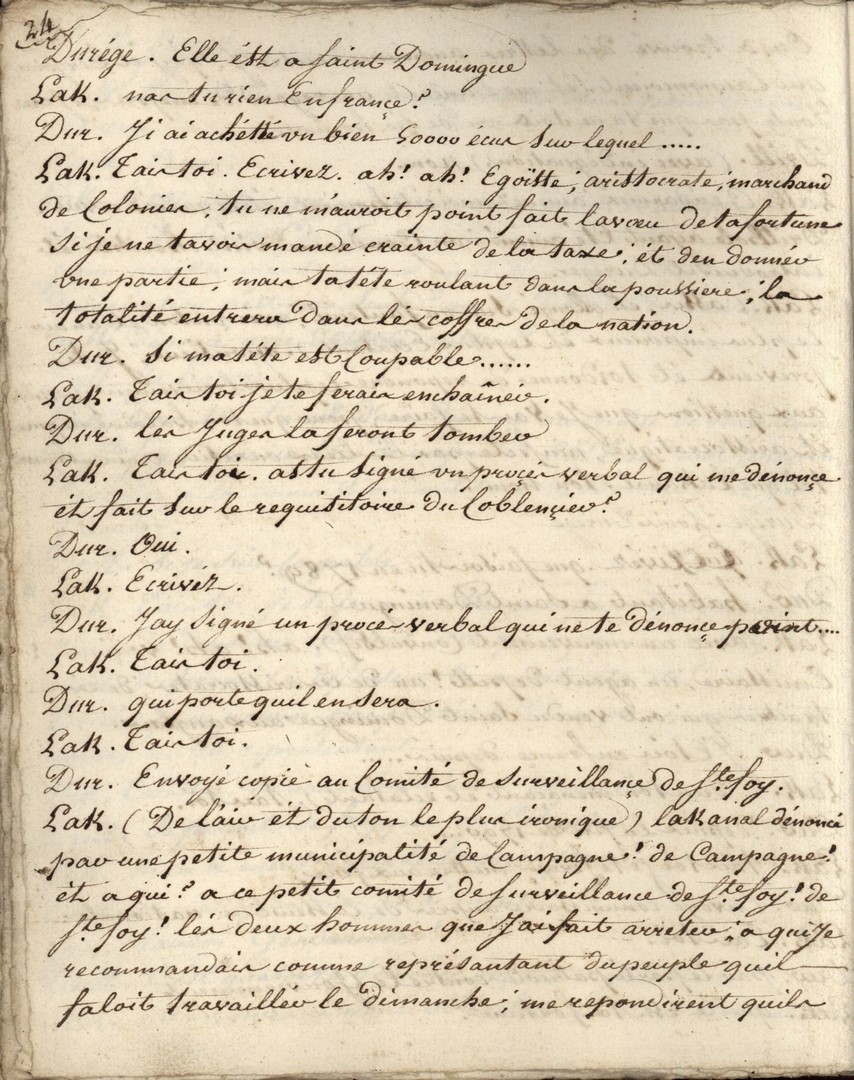 24
Durége. Elle ést a saint Domingue
Lak. nas tu rien Enfrançe?
Dur. Ji ai achétté un bien 50000 écus sur lequel .....
Lak. Tais toi. Ecrivez. ah! ah! Egoïste; aristocrate; marchand
de Colonies, tu ne m'auroit point fait lavœu de ta fortune
si je ne tavois mandé crainte de la taxe; ét den donnér
une partie; mais ta téte roulant dans la poussiere; la
totalité entrera dans lés coffres de la nation.
Dur. Si ma téte est Coupable......
Lak. Tais toi je te ferais enchaînér.
Dur. lés Juges la feront tomber
Lak. Tais toi. as tu signé un procés verbal qui me dénonçe
ét fait sur le requisitoire du Coblençier?
Dur. Oui.
Lak. Ecrivéz.
Dur. Jay signé un procés verbal qui ne te dénonçe point....
Lak. Tais toi.
Dur. qui porte quil en sera.
Lak. Tais toi.
Dur. Envoyé copie au Comité de surveillançe de Ste foy.
Lak. (De láir ét du ton le plus ironique) lakanal dénoncé
par une petite municipalité de Campagne! de Campagne!
ét a qui? a ce petit comité de surveillance de Ste foy! de
Ste foy! lés deux hommes que J'ai fait arreter; a qui Je
recommandais comme représantant du peuple quil
faloit travaillér le dimanche; me repondirent quils